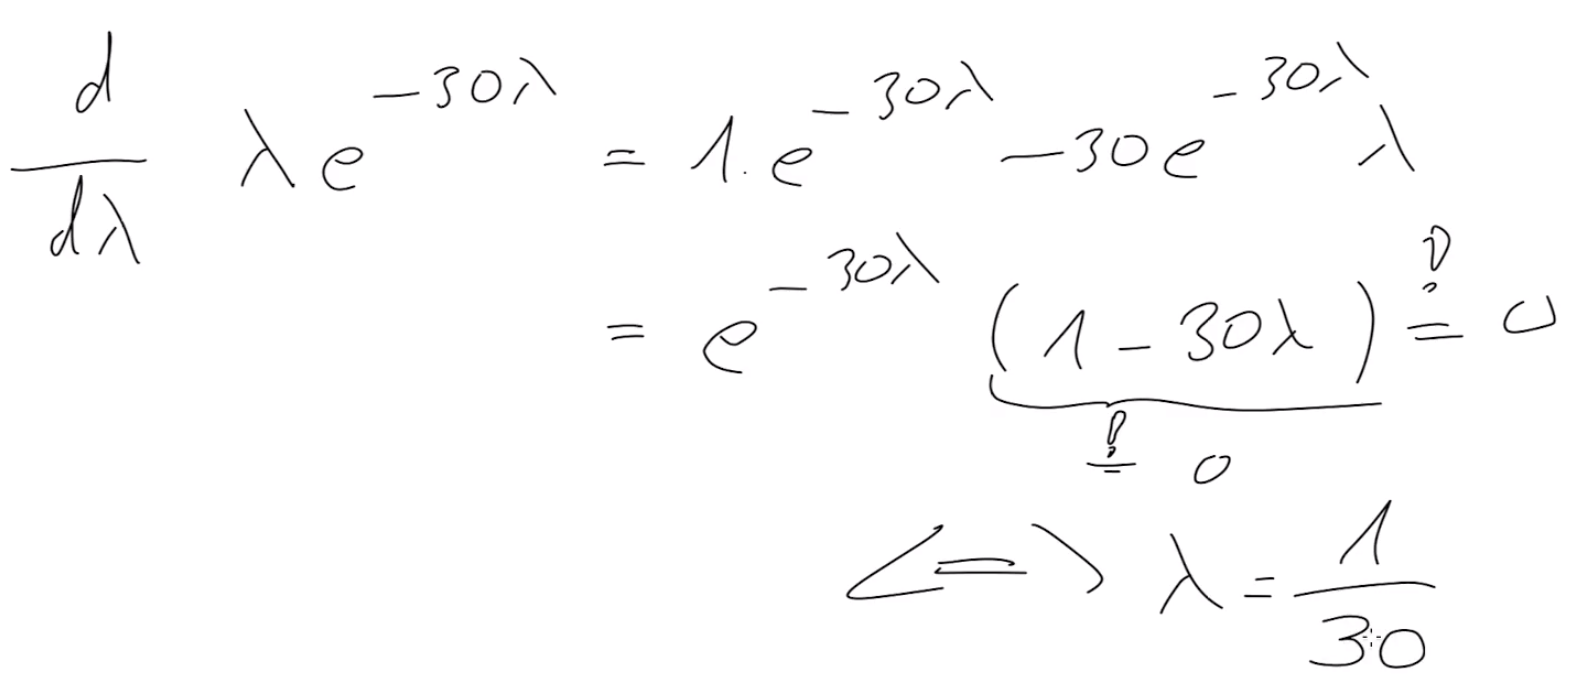 d/dλ λe^{-30λ} = 1·e^{-30λ} -30e^{-30λ} λ
= e^{-30λ} (1 - 30λ) =! 0
=! 0
<=> λ = 1/30